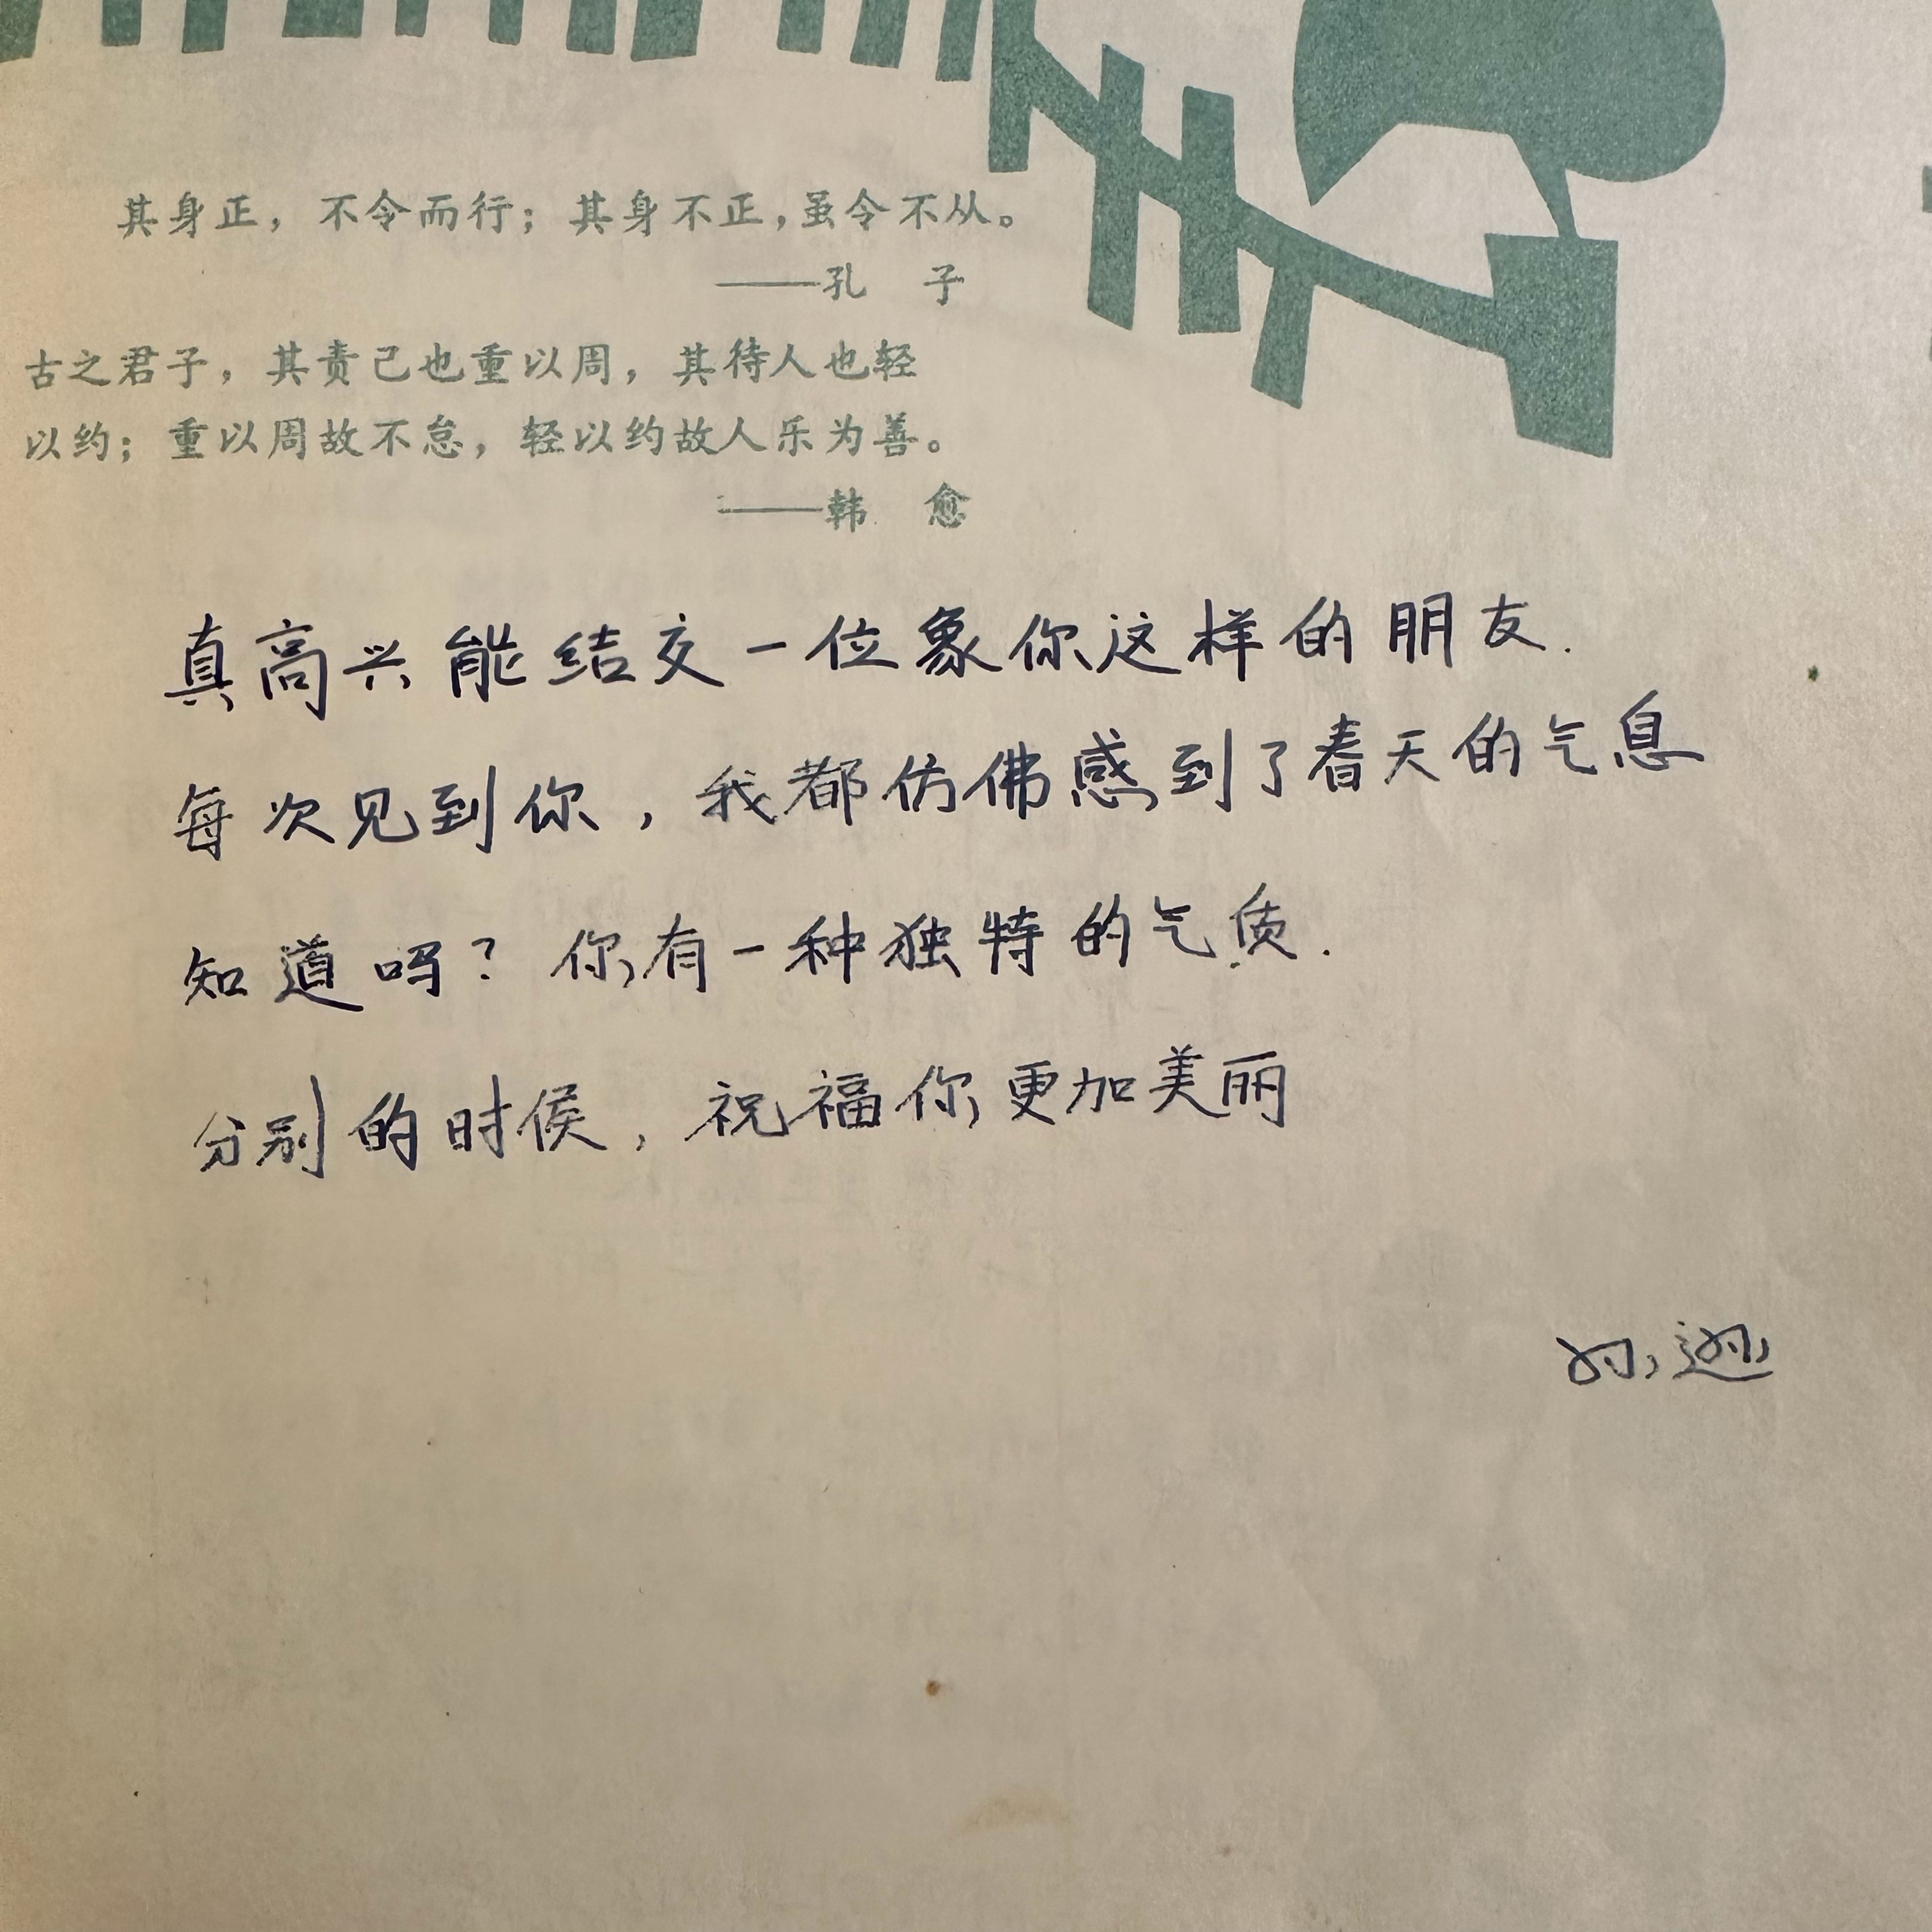 其身正，不令而行；其身不正，虽令不从。
——孔 子
古之君子，其责己也重以周，其待人也轻
以约；重以周故不怠，轻以约故人乐为善。
——韩 愈
真高兴能结交一位象你这样的朋友.
每次见到你，我都仿佛感到了春天的气息
知道吗？你有一种独特的气质.
分别的时候，祝福你更加美丽
孙逊